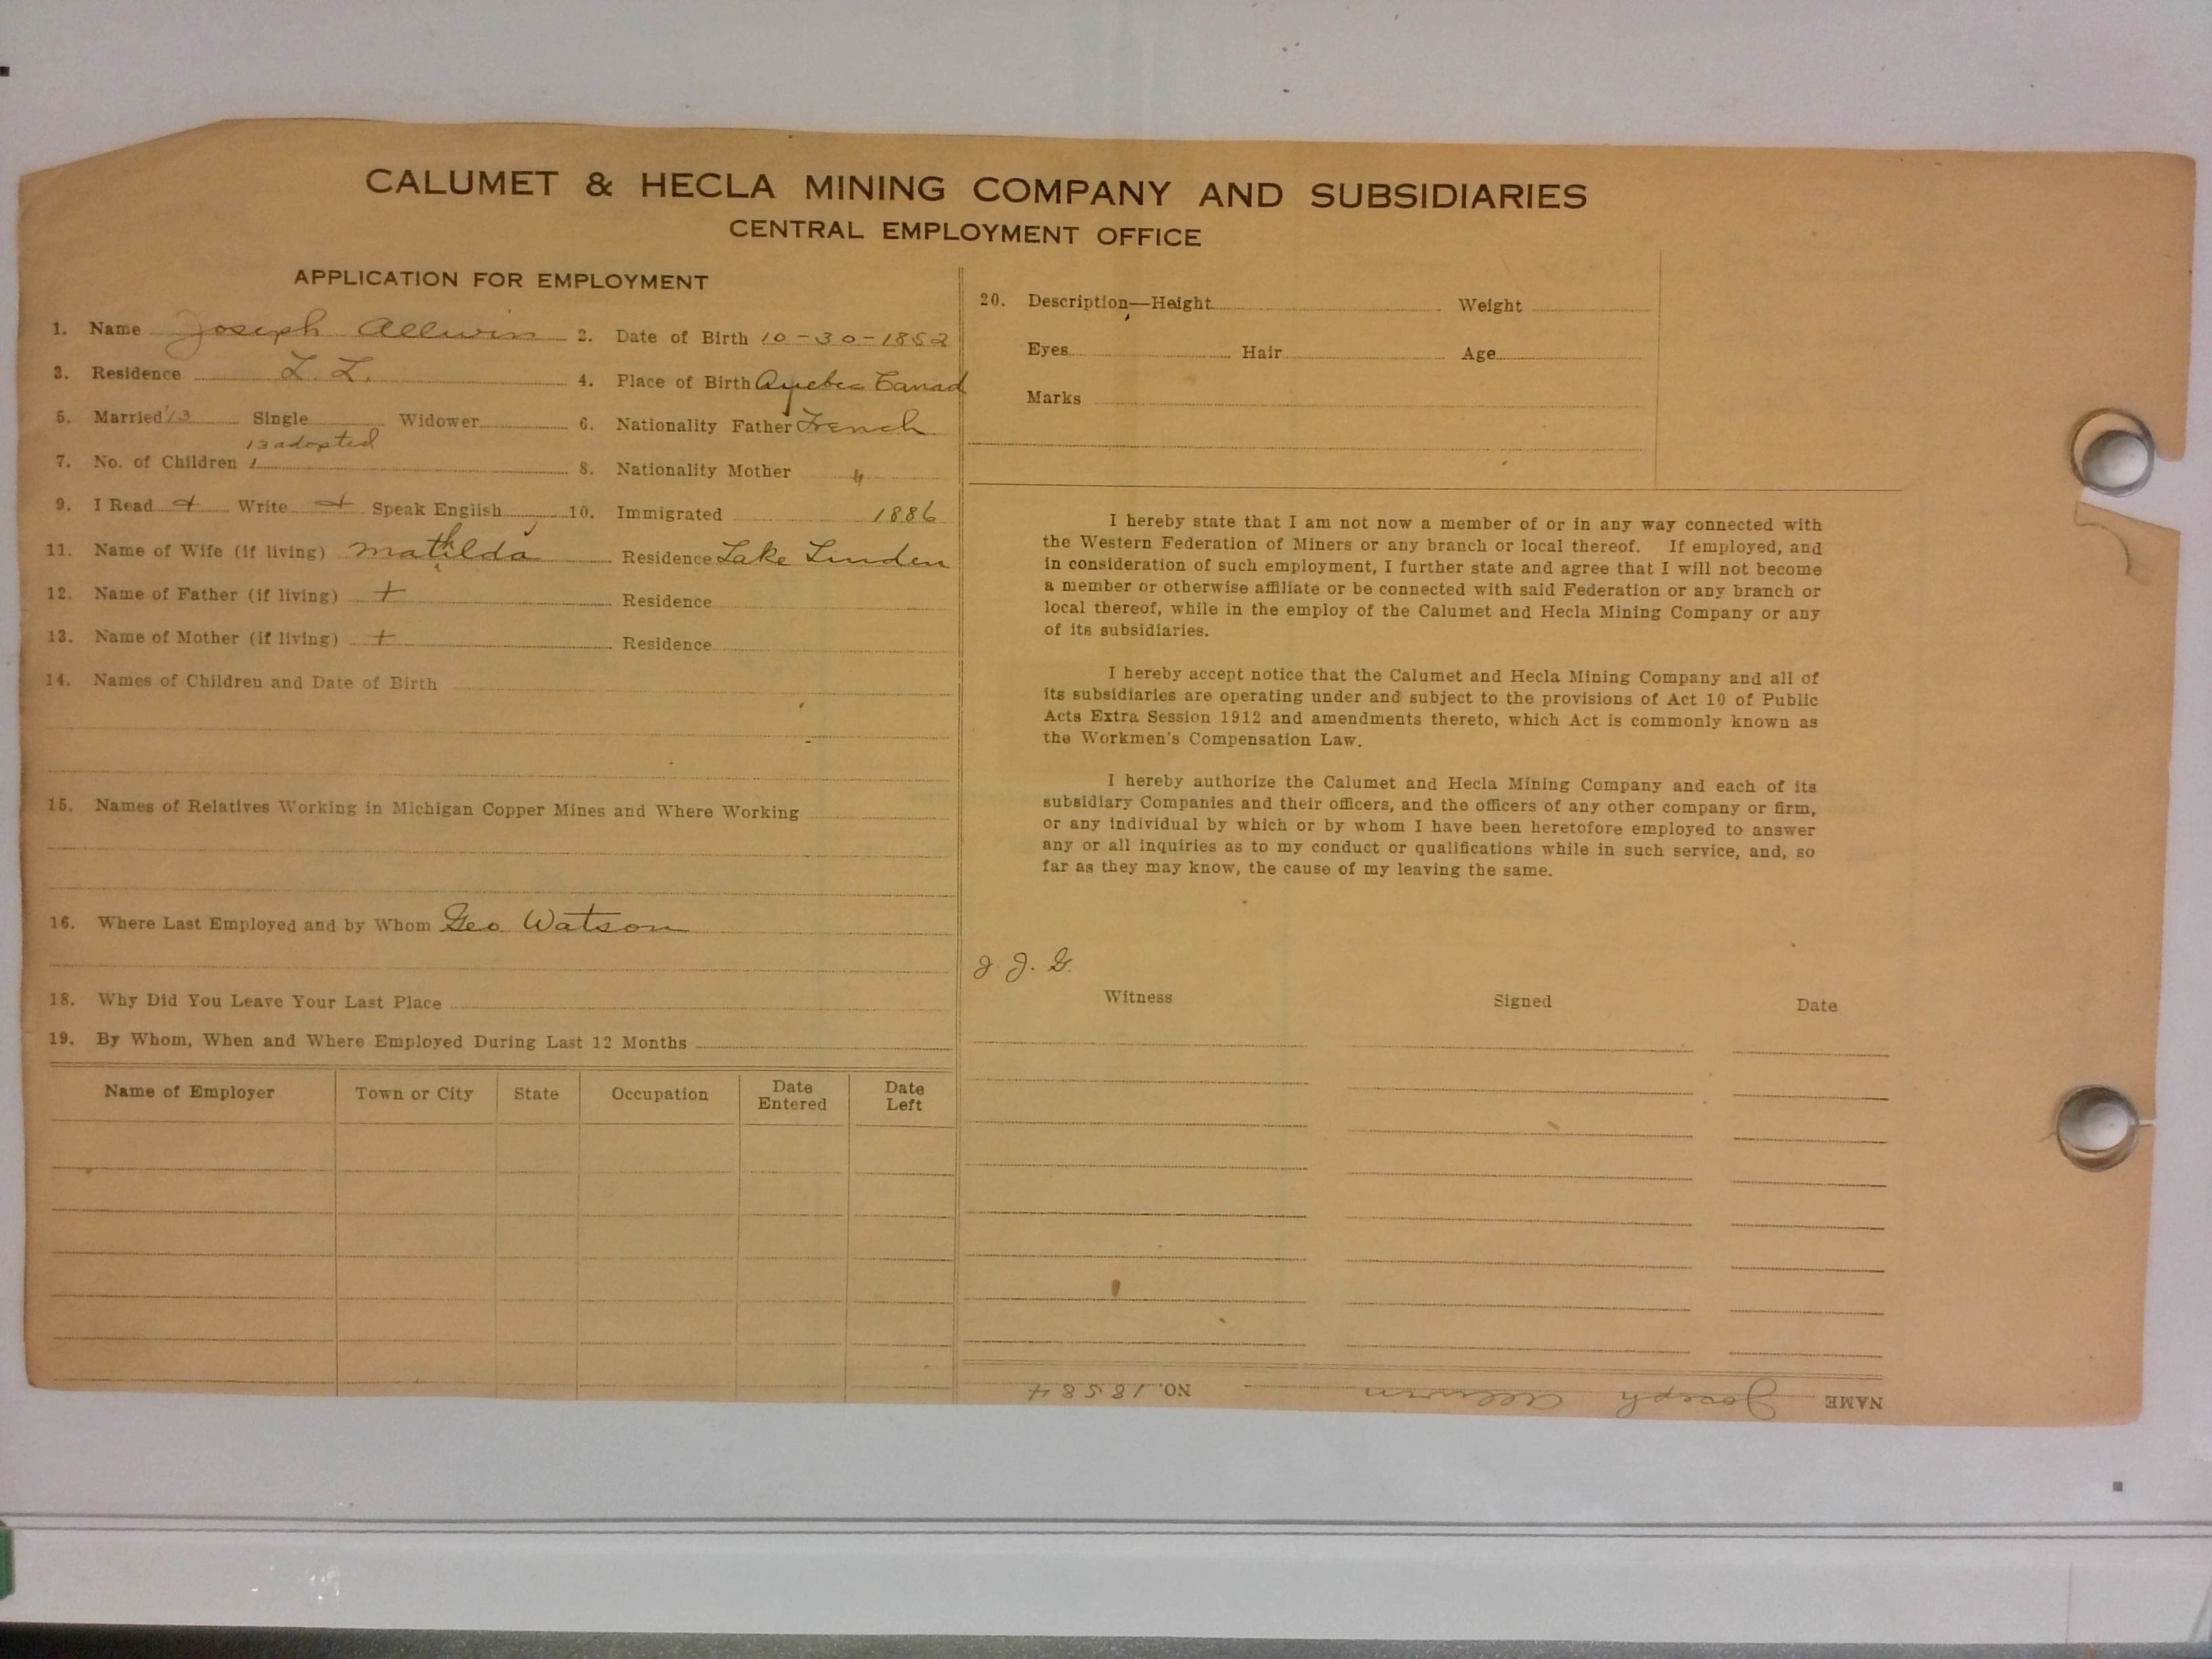 CALUMET & HECLA MINING COMPANY AND SUBSIDIARIES
CENTRAL EMPLOYMENT OFFICE
APPLICATION FOR EMPLOYMENT
1. Name Joseph Allwin 2. Date of Birth 10-30-1852
3. Residence L. L. 4. Place of Birth Quebec Canad
5. Married 13 Single Widower 6. Nationality Father French
13 adopted
7. No. of Children 1 8. Nationality Mother "
9. I Read + Write + Speak English 10. Immigrated 1886
11. Name of Wife (if living) Mathilda Residence Lake Linden
12. Name of Father (if living) + Residence
13. Name of Mother (if living) + Residence
14. Names of Children and Date of Birth
15. Names of Relatives Working in Michigan Copper Mines and Where Working
16. Where Last Employed and by Whom Geo. Watson
18. Why Did You Leave Your Last Place
19. By Whom, When and Where Employed During Last 12 Months
Name of Employer Town or City State Occupation Date Entered Date Left
20. Description—Height Weight
Eyes Hair Age
Marks
I hereby state that I am not now a member of or in any way connected with
the Western Federation of Miners or any branch or local thereof. If employed, and
in consideration of such employment, I further state and agree that I will not become
a member or otherwise affiliate or be connected with said Federation or any branch or
local thereof, while in the employ of the Calumet and Hecla Mining Company or any
of its subsidiaries.
I hereby accept notice that the Calumet and Hecla Mining Company and all of
its subsidiaries are operating under and subject to the provisions of Act 10 of Public
Acts Extra Session 1912 and amendments thereto, which Act is commonly known as
the Workmen's Compensation Law.
I hereby authorize the Calumet and Hecla Mining Company and each of its
subsidiary Companies and their officers, and the officers of any other company or firm,
or any individual by which or by whom I have been heretofore employed to answer
any or all inquiries as to my conduct or qualifications while in such service, and, so
far as they may know, the cause of my leaving the same.
J. J. G.
Witness Signed Date
NAME Joseph Allwin NO. 18584